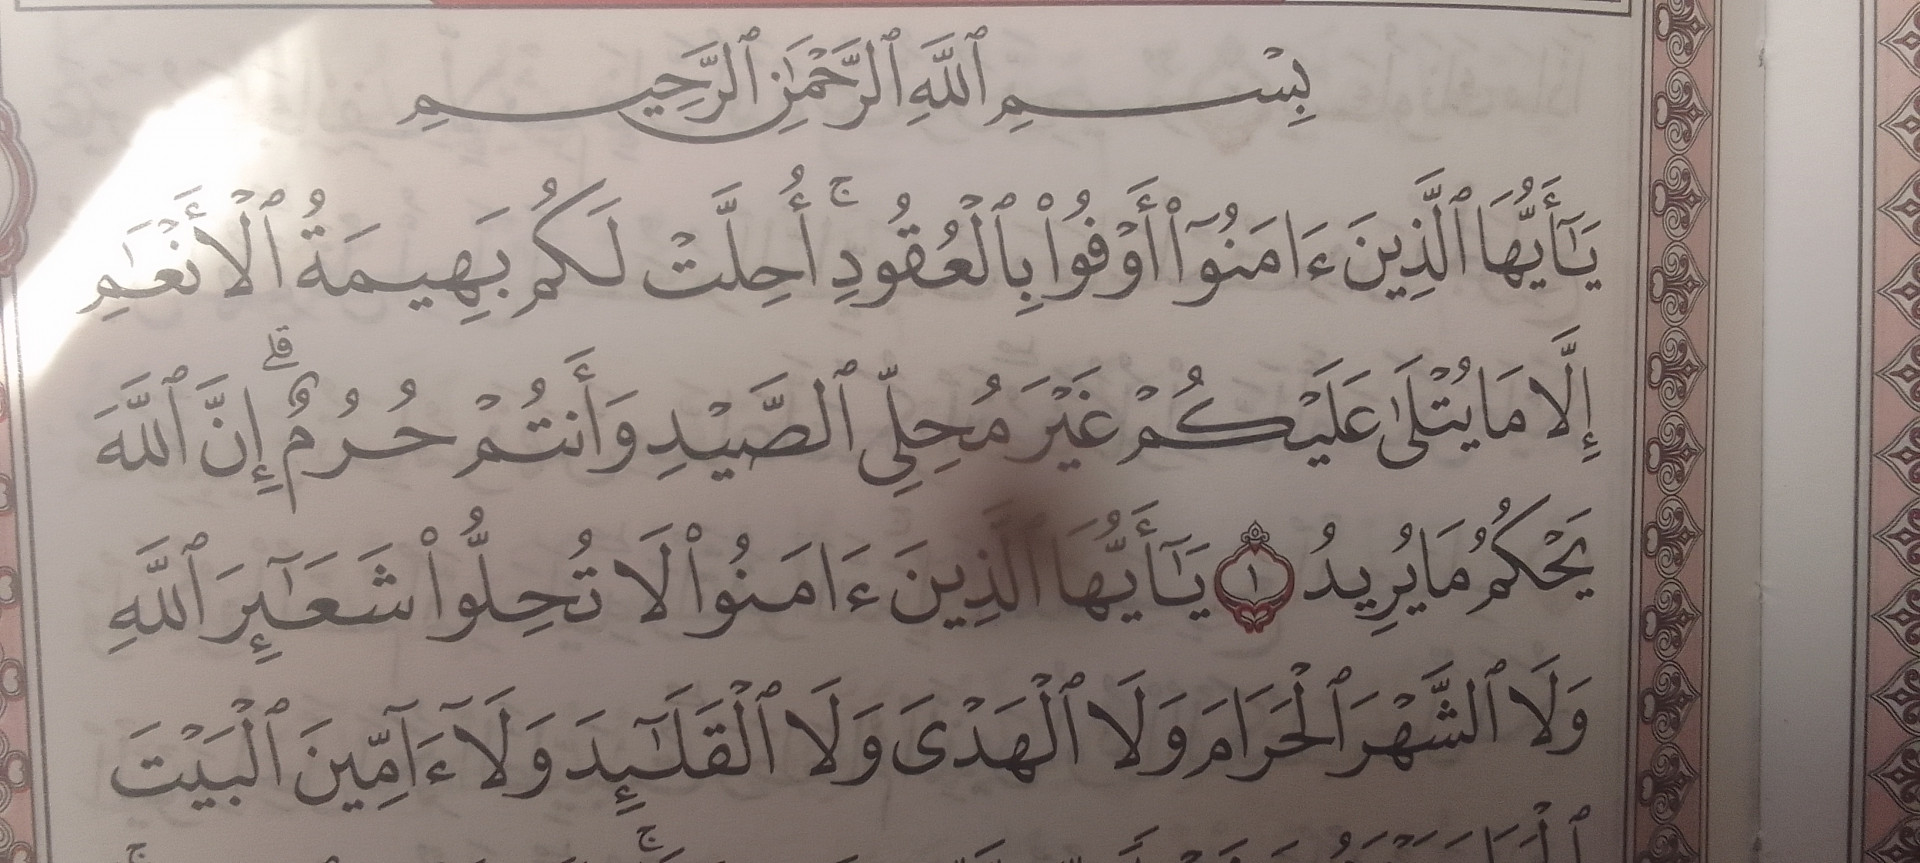 بِسْمِ ٱللَّهِ ٱلرَّحْمَٰنِ ٱلرَّحِيمِ
يَٰٓأَيُّهَا ٱلَّذِينَ ءَامَنُوٓا۟ أَوْفُوا۟ بِٱلْعُقُودِ ۚ أُحِلَّتْ لَكُم بَهِيمَةُ ٱلْأَنْعَٰمِ
إِلَّا مَا يُتْلَىٰ عَلَيْكُمْ غَيْرَ مُحِلِّى ٱلصَّيْدِ وَأَنتُمْ حُرُمٌ ۗ إِنَّ ٱللَّهَ
يَحْكُمُ مَا يُرِيدُ ١ يَٰٓأَيُّهَا ٱلَّذِينَ ءَامَنُوا۟ لَا تُحِلُّوا۟ شَعَٰٓئِرَ ٱللَّهِ
وَلَا ٱلشَّهْرَ ٱلْحَرَامَ وَلَا ٱلْهَدْىَ وَلَا ٱلْقَلَٰٓئِدَ وَلَآ ءَآمِّينَ ٱلْبَيْتَ